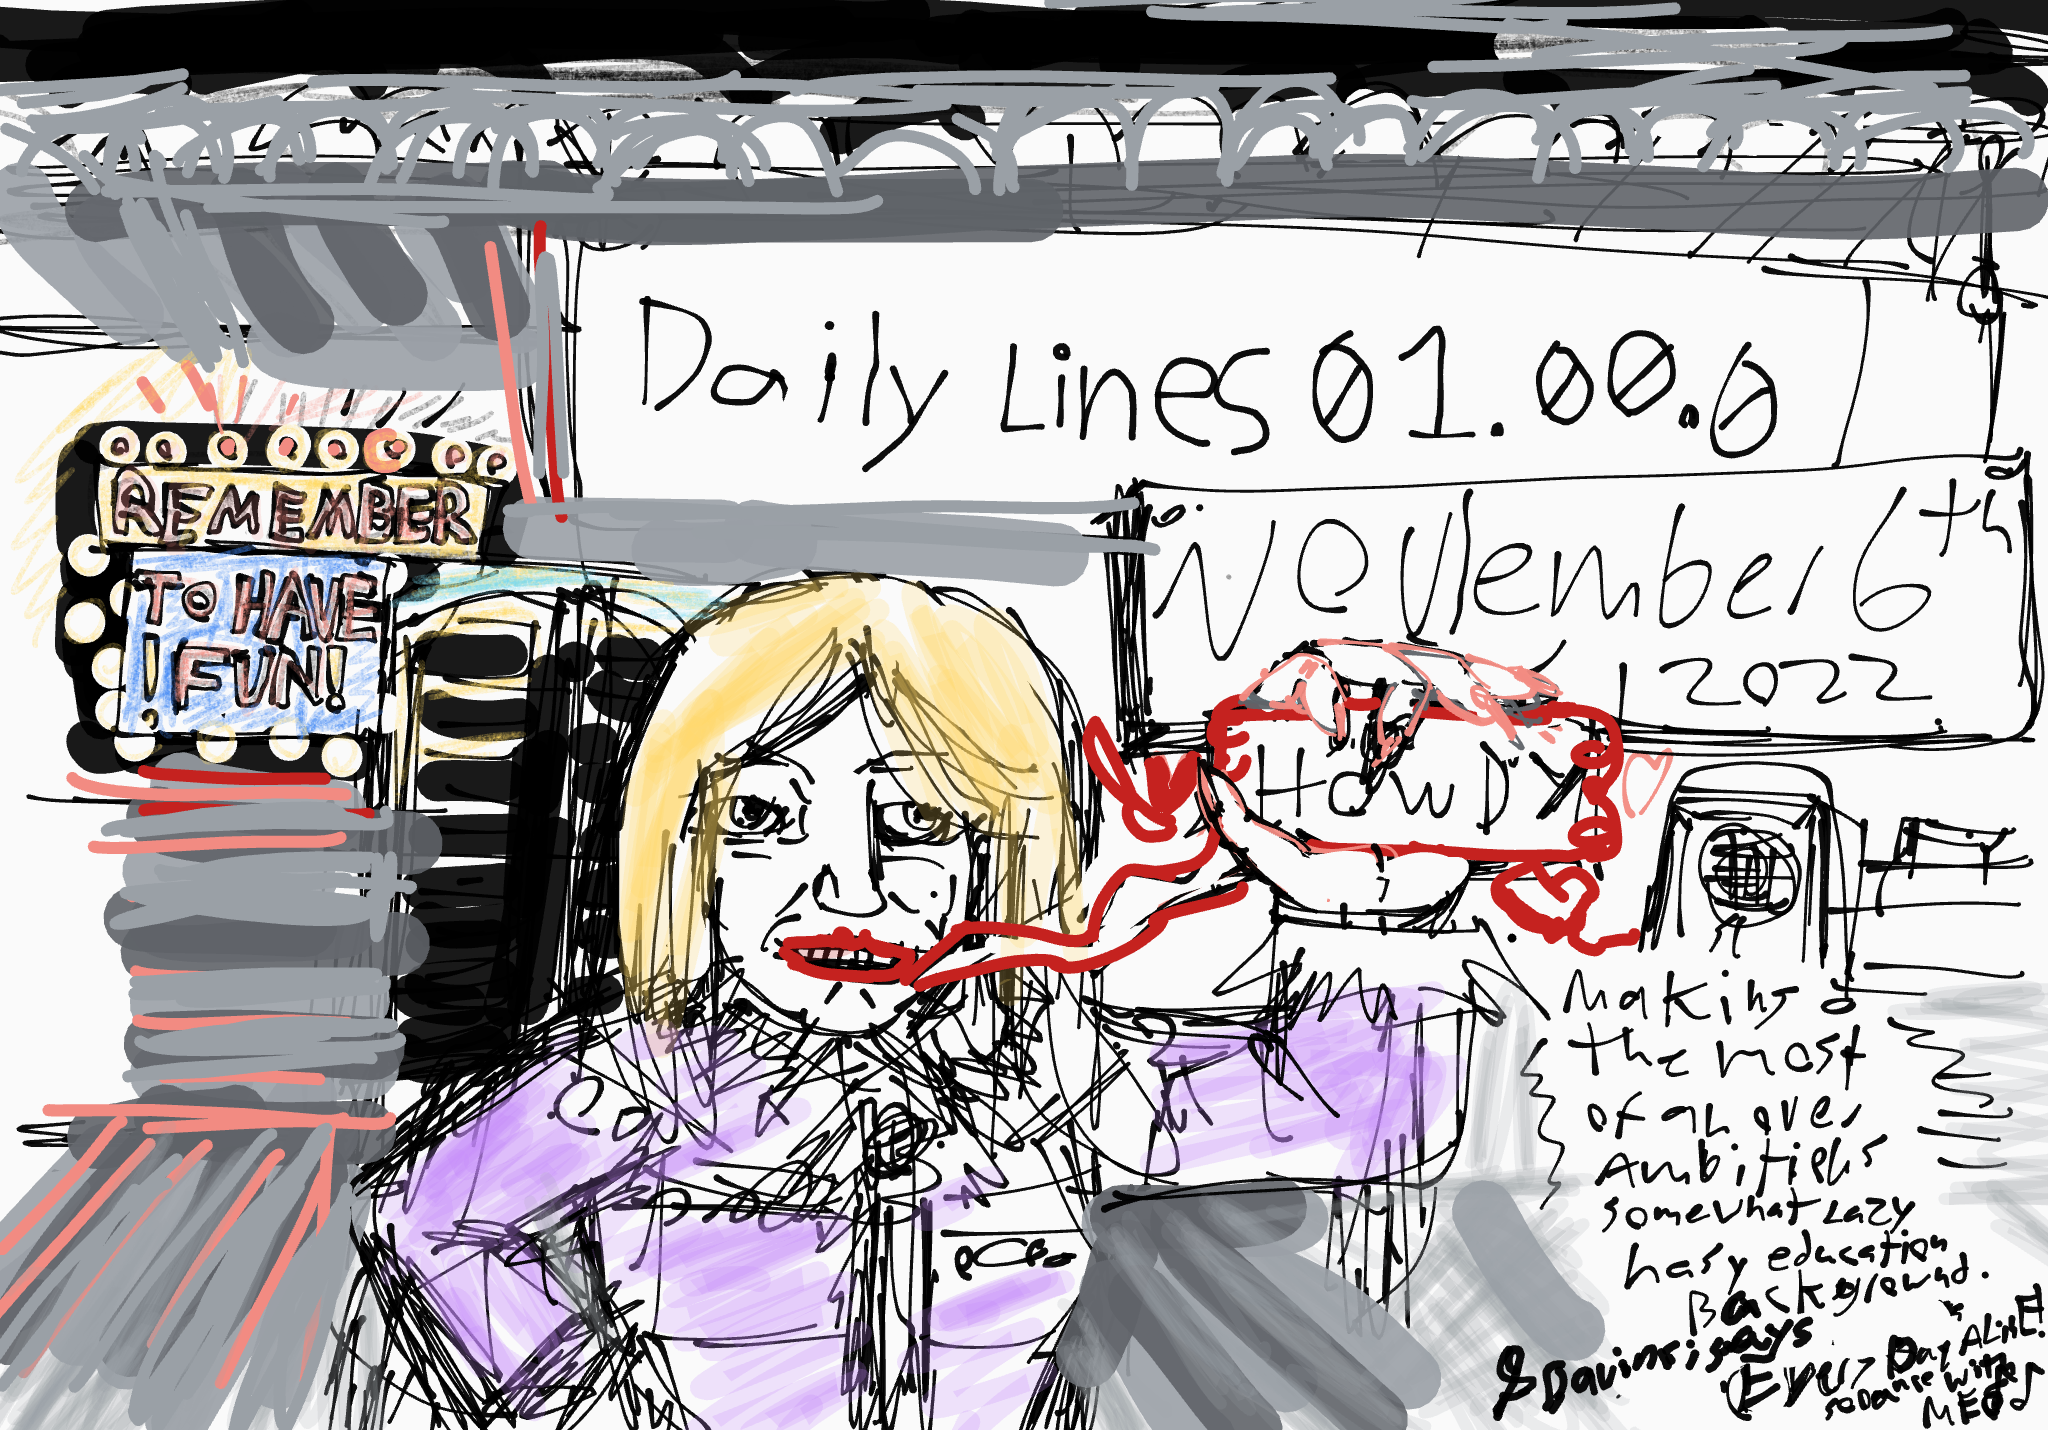 Daily Lines 01.00.0
November 6th
, 2022
REMEMBER
TO HAVE
! FUN!
HOWDY
Making
the most
of an over
Ambitious
somewhat Lazy
hasy education
Background.
Davinsisays
Every Day ALIVE!
so Dance with
ME